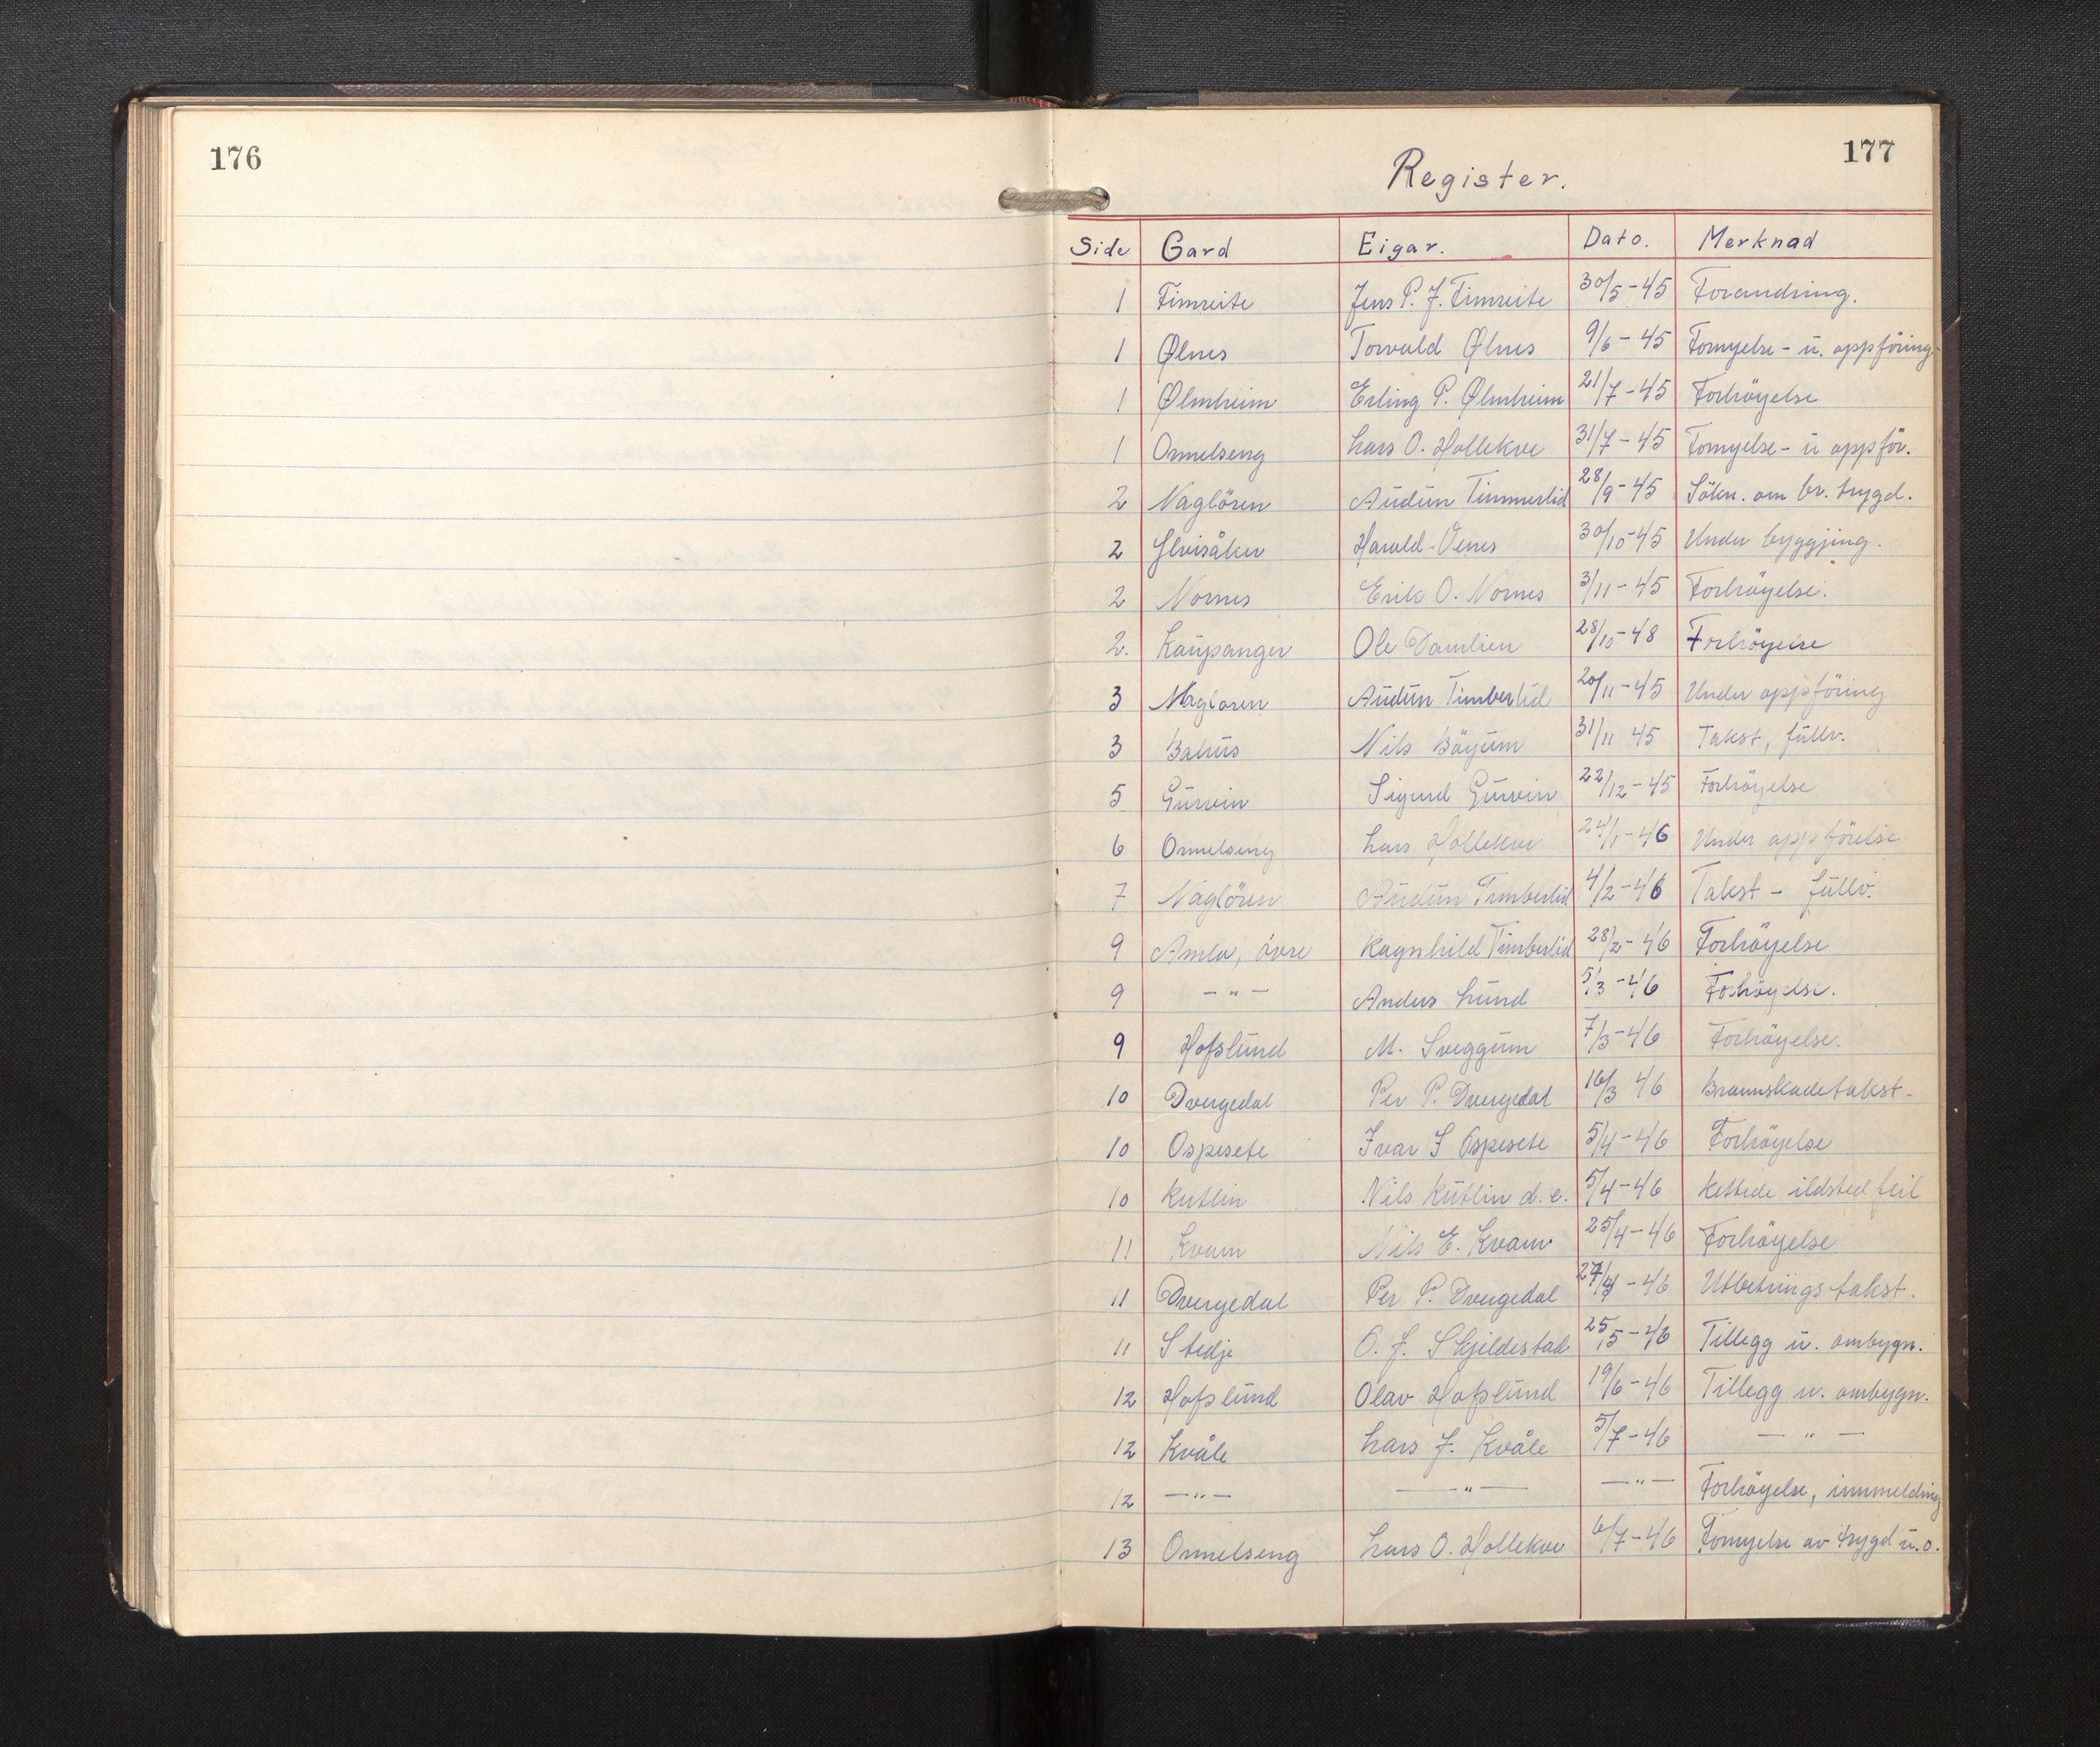 176
177
Register.
Side Gard Eigar. Dato. Merknad
1 Fimreite Jens P. J. Fimreite 30/5-45 Forandring.
1 Ølnes Torvald Ølnes 9/6-45 Fornyelse - u. oppföring
1 Ølmheim Erling P. Ølmheim 21/7-45 Forhöyelse
1 Ormelseng Lars O. Hollekve 31/7-45 Fornyelse - u oppför.
2 Naglören Audun Timmerlid 28/9-45 Sökn. om br. trygd.
2 Elvisåker Harald Venes 30/10-45 Under byggjing.
2 Nornes Erik O. Nornes 3/11-45 Forhöyelse.
2. Kaupanger Ole Damlien 28/10-48 Forhöyelse
3 Nagloren Audun Timberlid 20/11-45 Under oppföring
3 Bahus Nils Böyum 31/11 45 Takst, fullv.
5 Gurvin Sigurd Gurvin 22/12-45 Forhöyelse
6 Ormelseng Lars Hollekve 24/1-46 Under oppförelse
7 Naglören Audun Timberlid 4/2-46 Takst - fullv.
9 Amla, övre Ragnhild Timberlid 28/2-46 Forhöyelse
9 - " - Anders Lund 5/3-46 Forhöyelse.
9 Hofslund M. Sveggum 7/3-46 Forhöyelse.
10 Dvergedal Per P. Dvergedal 16/3 46 Brannskadetakst.
10 Ospesete Ivar I Ospesete 5/4-46 Forhöyelse
10 Kutlin Nils Kutlin d.e. 5/4-46 ildsted feil
11 Kvam Nils E. Kvam 25/4-46 Forhöyelse
11 Dvergedal Per P. Dvergedal 27/4-46 Utbetrings takst.
11 Stedje O. J. Skjeldestad 25/5-46 Tillegg u. ombygn.
12 Hofslund Olav Hofslund 19/6-46 Tillegg u. ombygn.
12 Kvåle Lars J. Kvåle 5/7-46 - " -
12 - " - - " - - " - Forhöyelse, innmelding
13 Ormelseng Lars O. Hollekve 6/7-46 Fornyelse av trygd u.o.